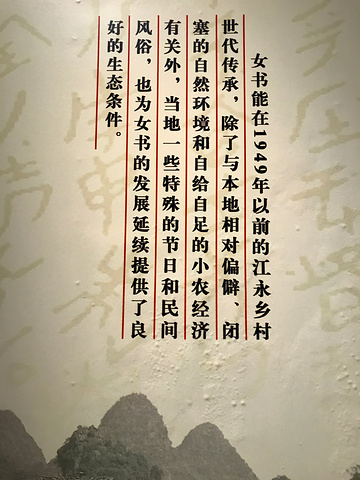 女书能在1949年以前的江永乡村
世代传承，除了与本地相对偏僻、闭
塞的自然环境和自给自足的小农经济
有关外，当地一些特殊的节日和民间
风俗，也为女书的发展延续提供了良
好的生态条件。